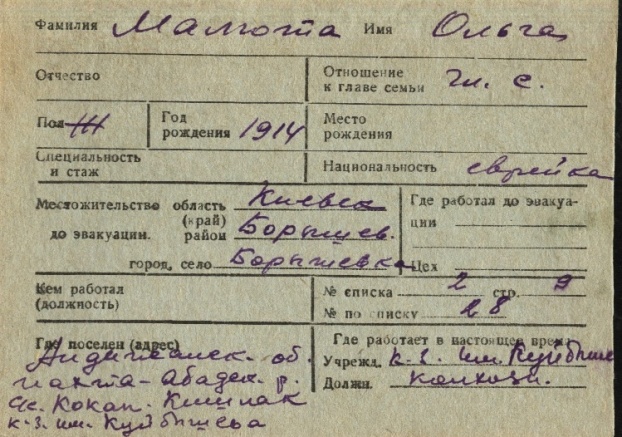 Фамилия Мамота Имя Ольга
Отчество
Отношение к главе семьи гл. с.
Пол Ж
Год рождения 1914
Место рождения
Специальность и стаж
Национальность еврейка
Местожительство область Киевск
(край)
до эвакуации. район Борышев.
город, село Борышевка
Где работал до эвакуации
Цех
Кем работал (должность)
№ списка 2 стр. 9
№ по списку 28
Где поселен (адрес)
Андижанск. об.
Пахта-Абадск. р.
Кокан. Кишлак
к-з. им. Куйбышева
Где работает в настоящее время
Учрежд. к-з. им. Куйбыше
Должн. колхозн.